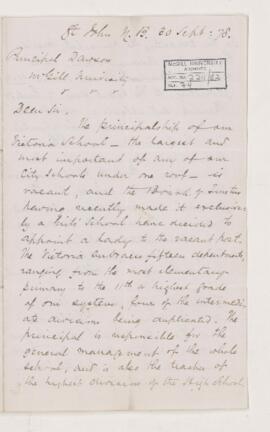 St John N. B. 30 Sept: 78.
Principal Dawson
McGill University
McGILL UNIVERSITY
ARCHIVES
ACC. NO.
REF.
Dear Sir,
The principalship of our
Victoria School – the largest and
most important of any of our
City Schools under one roof – is
vacant, and the Board of Trustees
having recently made it exclusively
a Girls' School have decided to
appoint a Lady to the vacant post.
The Victoria embraces fifteen departments,
ranging from the most elementary
primary to the 11th or highest grade
of our system, four of the intermedi-
ate divisions being duplicated. The
principal is responsible for the
general management of the whole
school, and is also the teacher of
the highest division of the High School